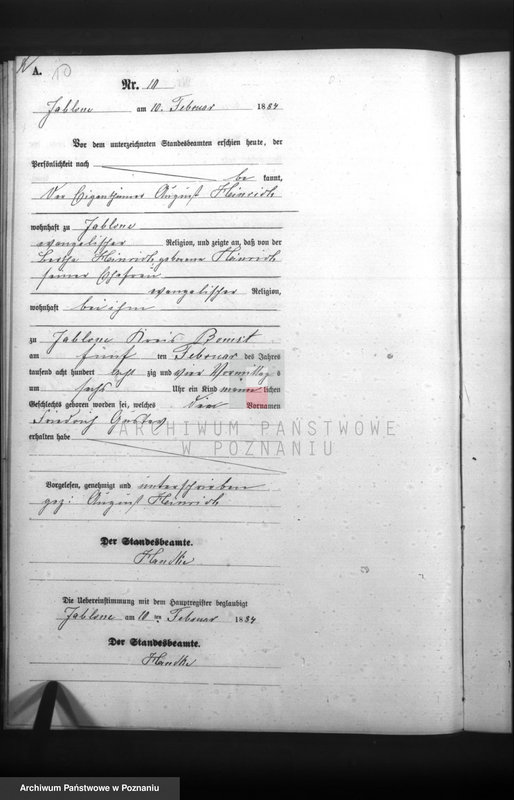 A. 10
Nr. 10
Jablone am 10. Februar 1884
Vor dem unterzeichneten Standesbeamten erschien heute, der
Persönlichkeit nach
be kannt,
der Eigenthümer August Heinrich
wohnhaft zu Jablone
evangelischer Religion, und zeigte an, daß von der
Heinrich geborene Heinrich
seiner Ehefrau
evangelischer Religion,
wohnhaft bei ihm
zu Jablone Kreis Bomst
am fünf ten Februar des Jahres
tausend acht hundert acht zig und vier Vormittag s
um sechs Uhr ein Kind männ lichen
Geschlechts geboren worden sei, welches die Vornamen
Friedrich Gustav
erhalten habe
ARCHIWUM PAŃSTWOWE
W POZNANIU
Vorgelesen, genehmigt und unterschrieben
gez: August Heinrich
Der Standesbeamte.
Handke
Die Uebereinstimmung mit dem Hauptregister beglaubigt
Jablone am 10 ten Februar 1884
Der Standesbeamte.
Handke
Archiwum Państwowe w Poznaniu